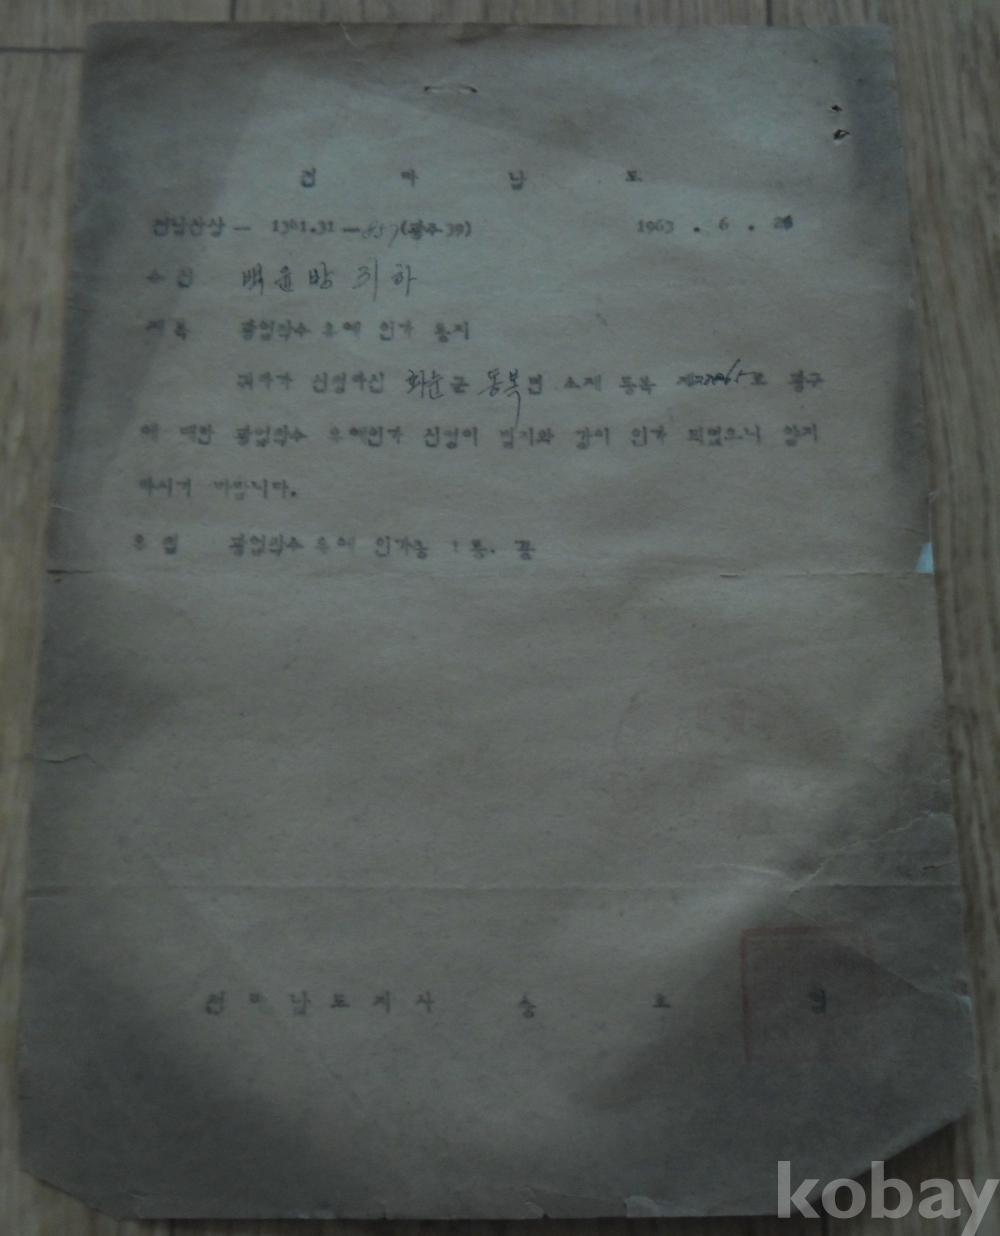 전라남도
전남산상 - 1361.31 - 857 (광주 39) 1963 . 6 . 26
수신 백윤방 귀하
제목 광업착수 유예 인가 통지
귀하가 신청하신 화순군 동복면 소재 등록 호 광구
에 대한 광업착수 유예인가 신청이 별지와 같이 인가 되었으니 양지
하시기 바랍니다.
유첨 광업착수 유예 인가증 1통. 끝
전라남도지사 송 호
kobay